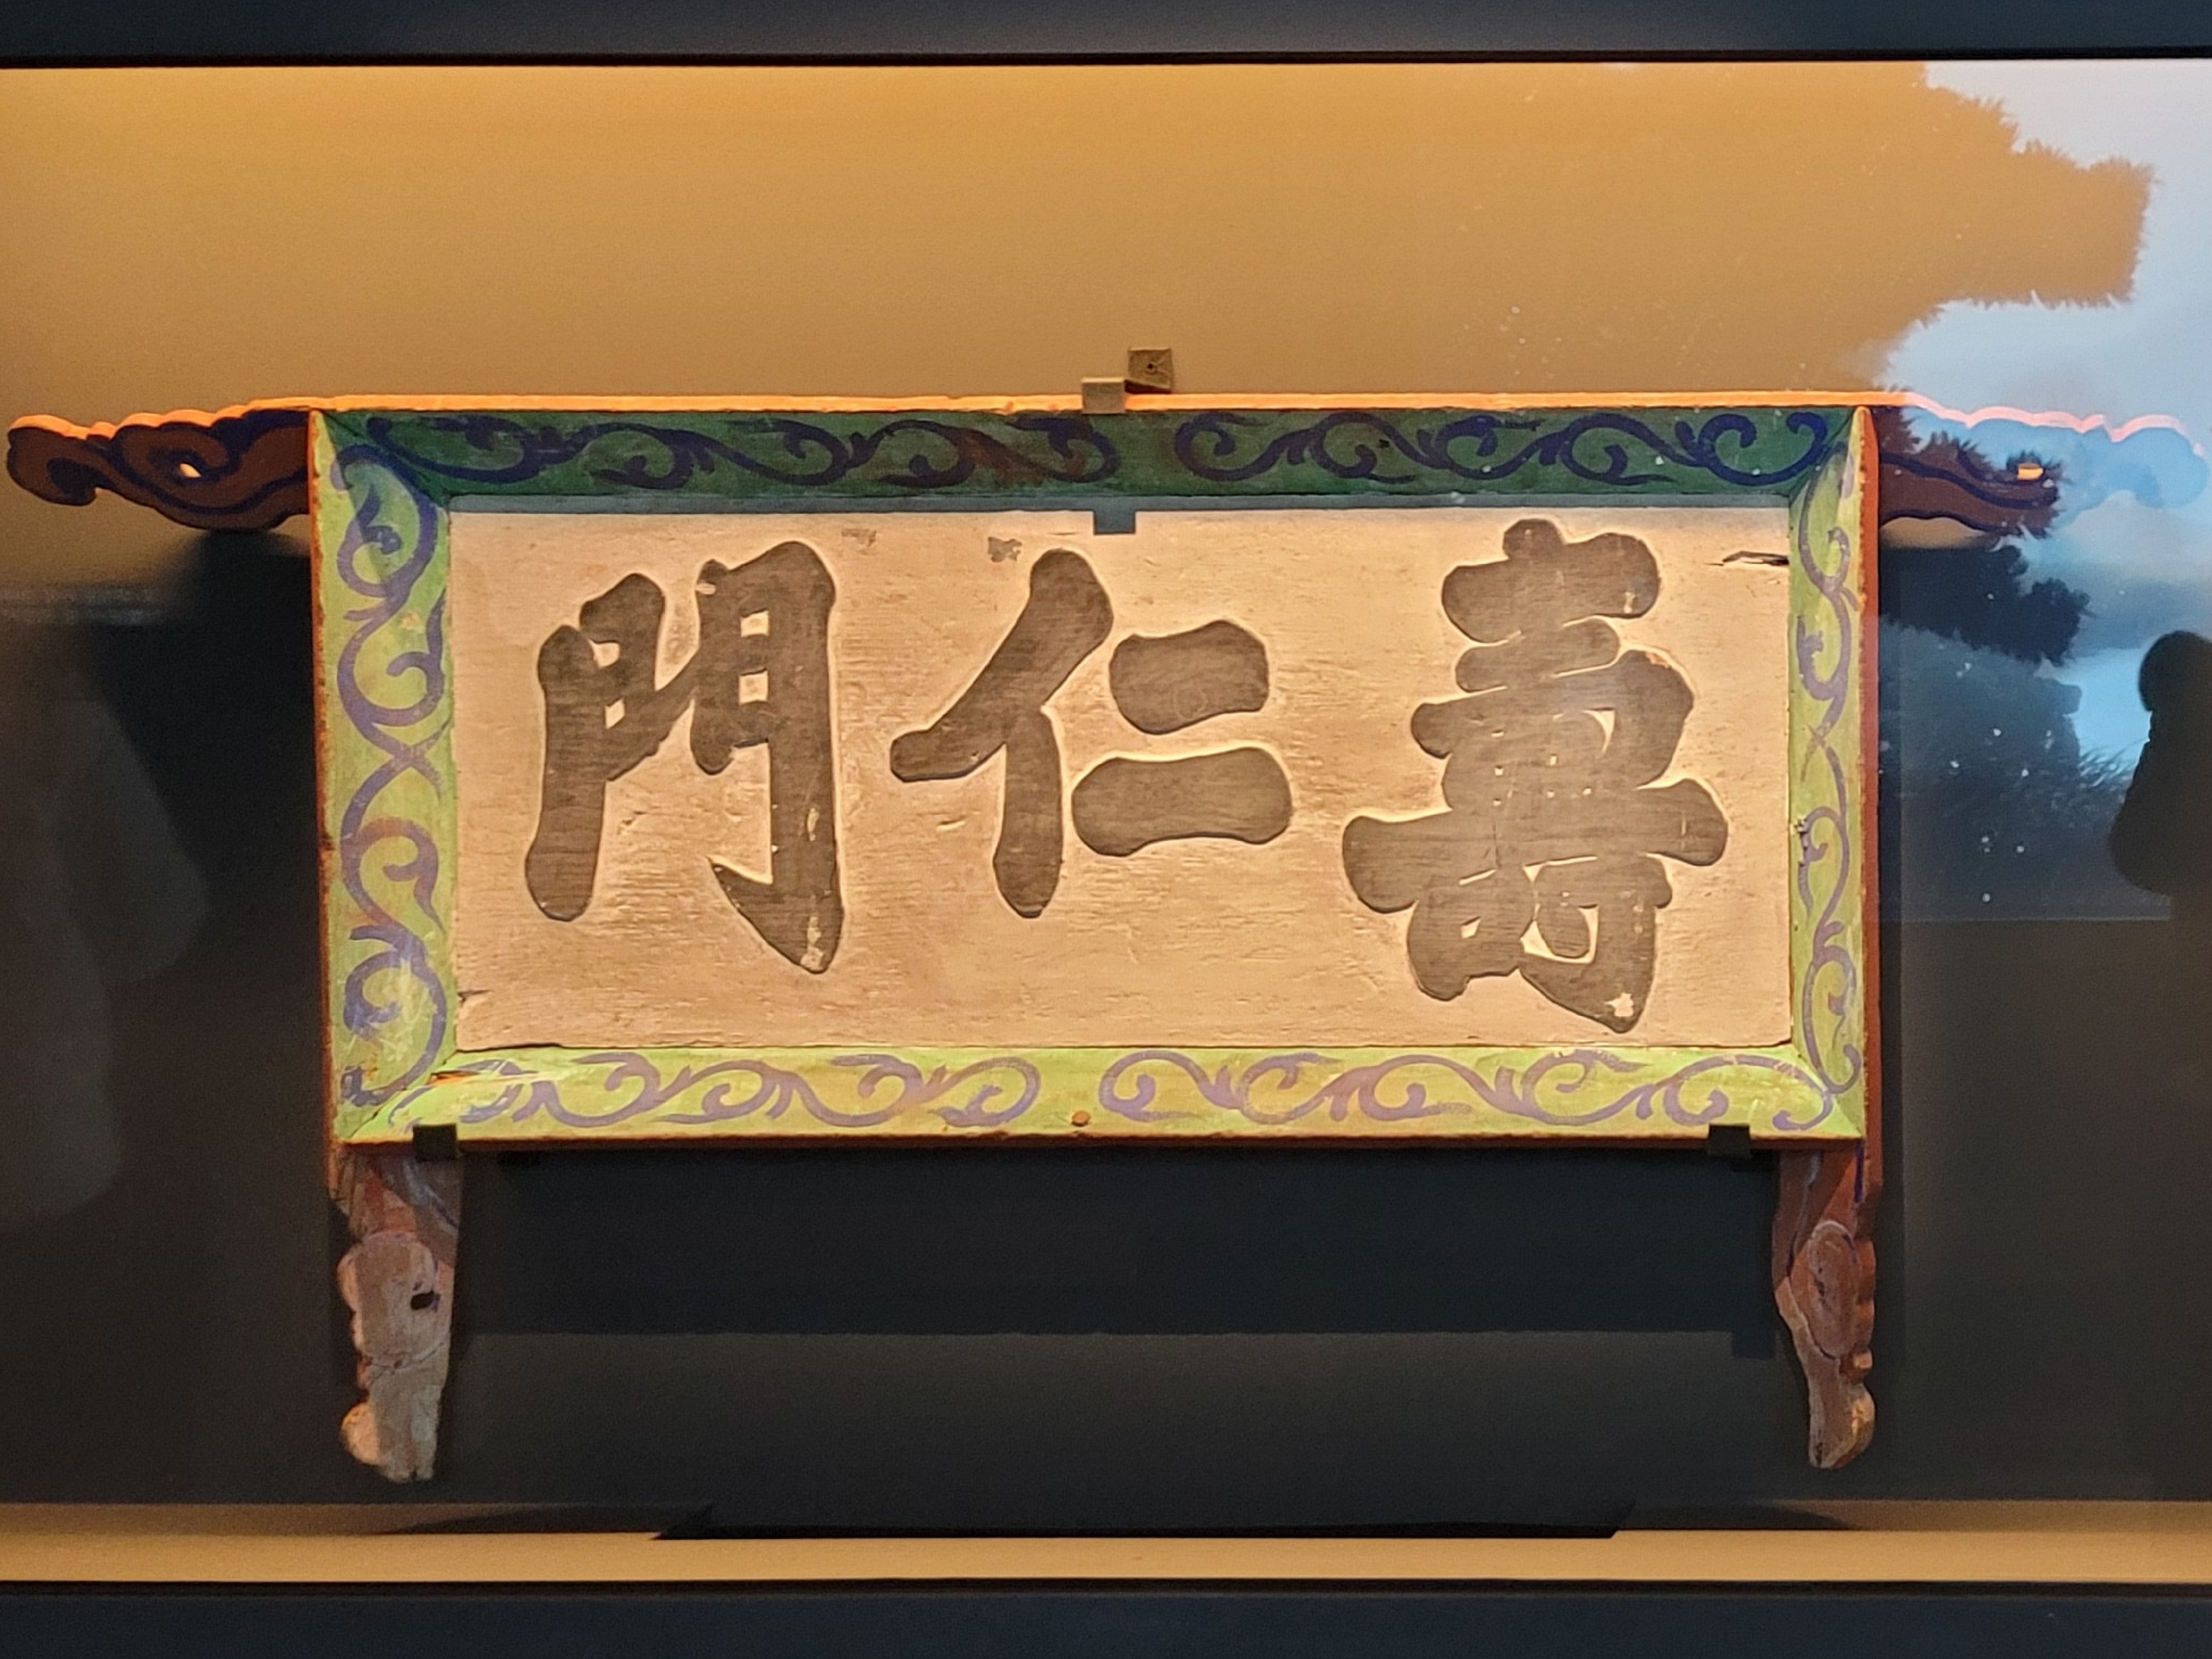 壽仁門